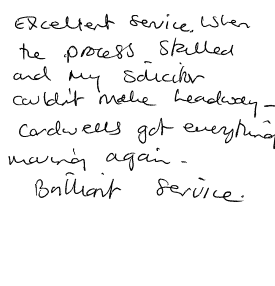 Excellent service. When
the process stalled
and my solicitor
couldn't make headway -
Cardwells got everything
moving again -
Brilliant service.